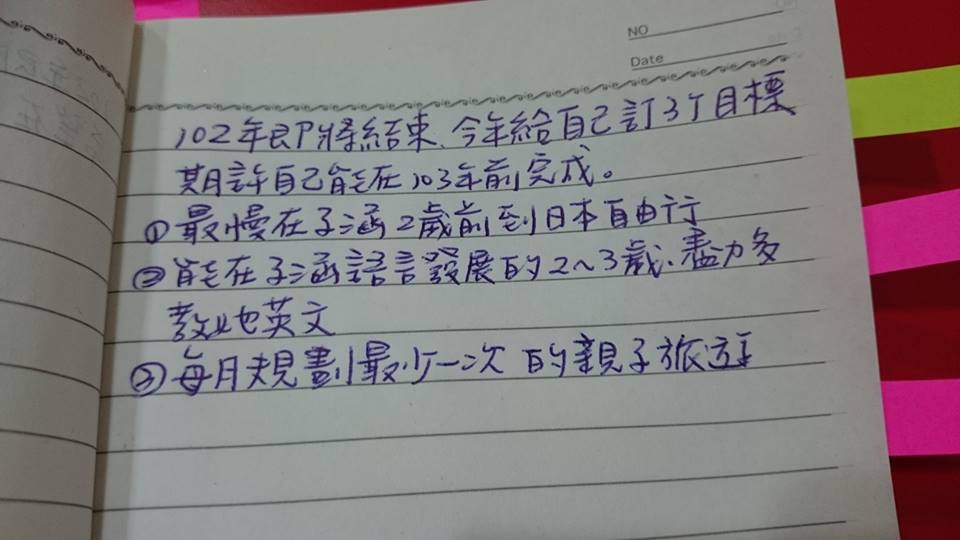 NO
Date
102年即將結束、今年給自己訂3个目標
期許自己能在103年前完成。
①最慢在子涵2歲前到日本自由行
②能在子涵語言發展的2~3歲、盡力多
教她英文
③每月規劃最少一次的親子旅遊